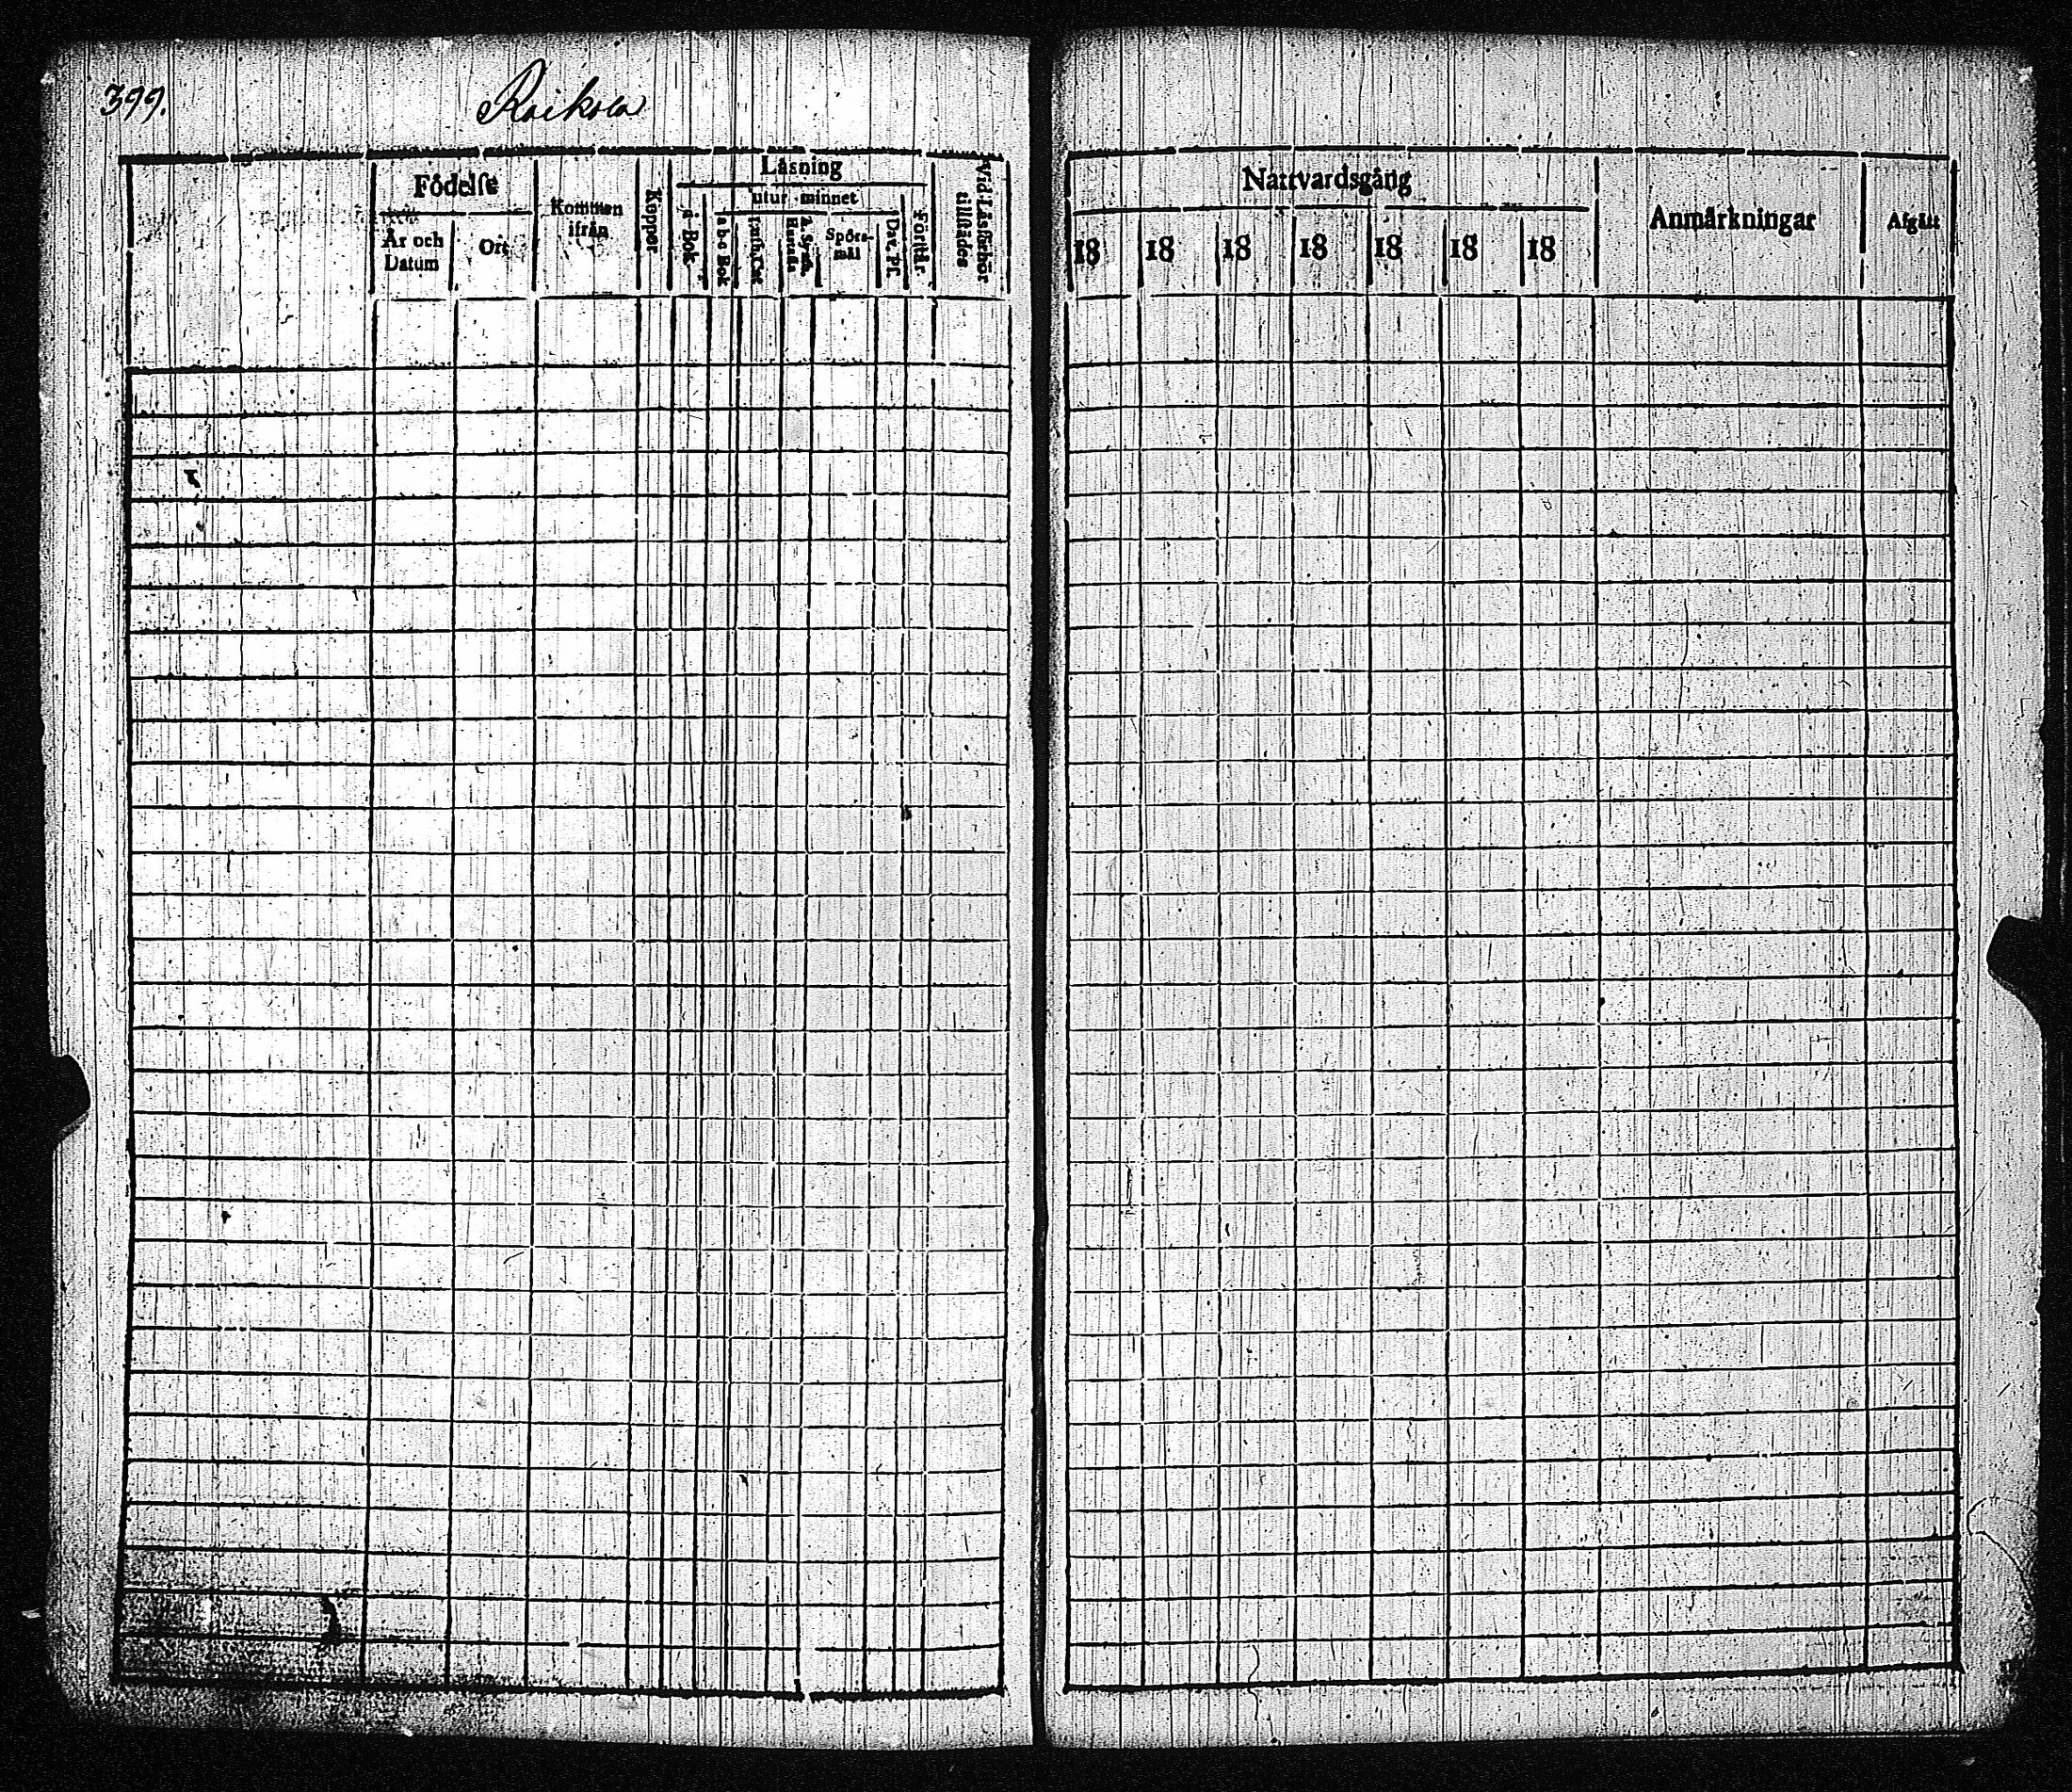 399.
Raikola
Födelse
År och
Datum
Ort
Kommen
ifrån
Koppor
Läsning
utur minnet
i Bok
a b c Bok
Luth. Cat.
Spörs-
mål
Dav. Ps.
Förstår
Vid Läsförhör
tillstädes
Nattvardsgång
18 18 18 18 18 18 18
Anmärkningar
Afgått